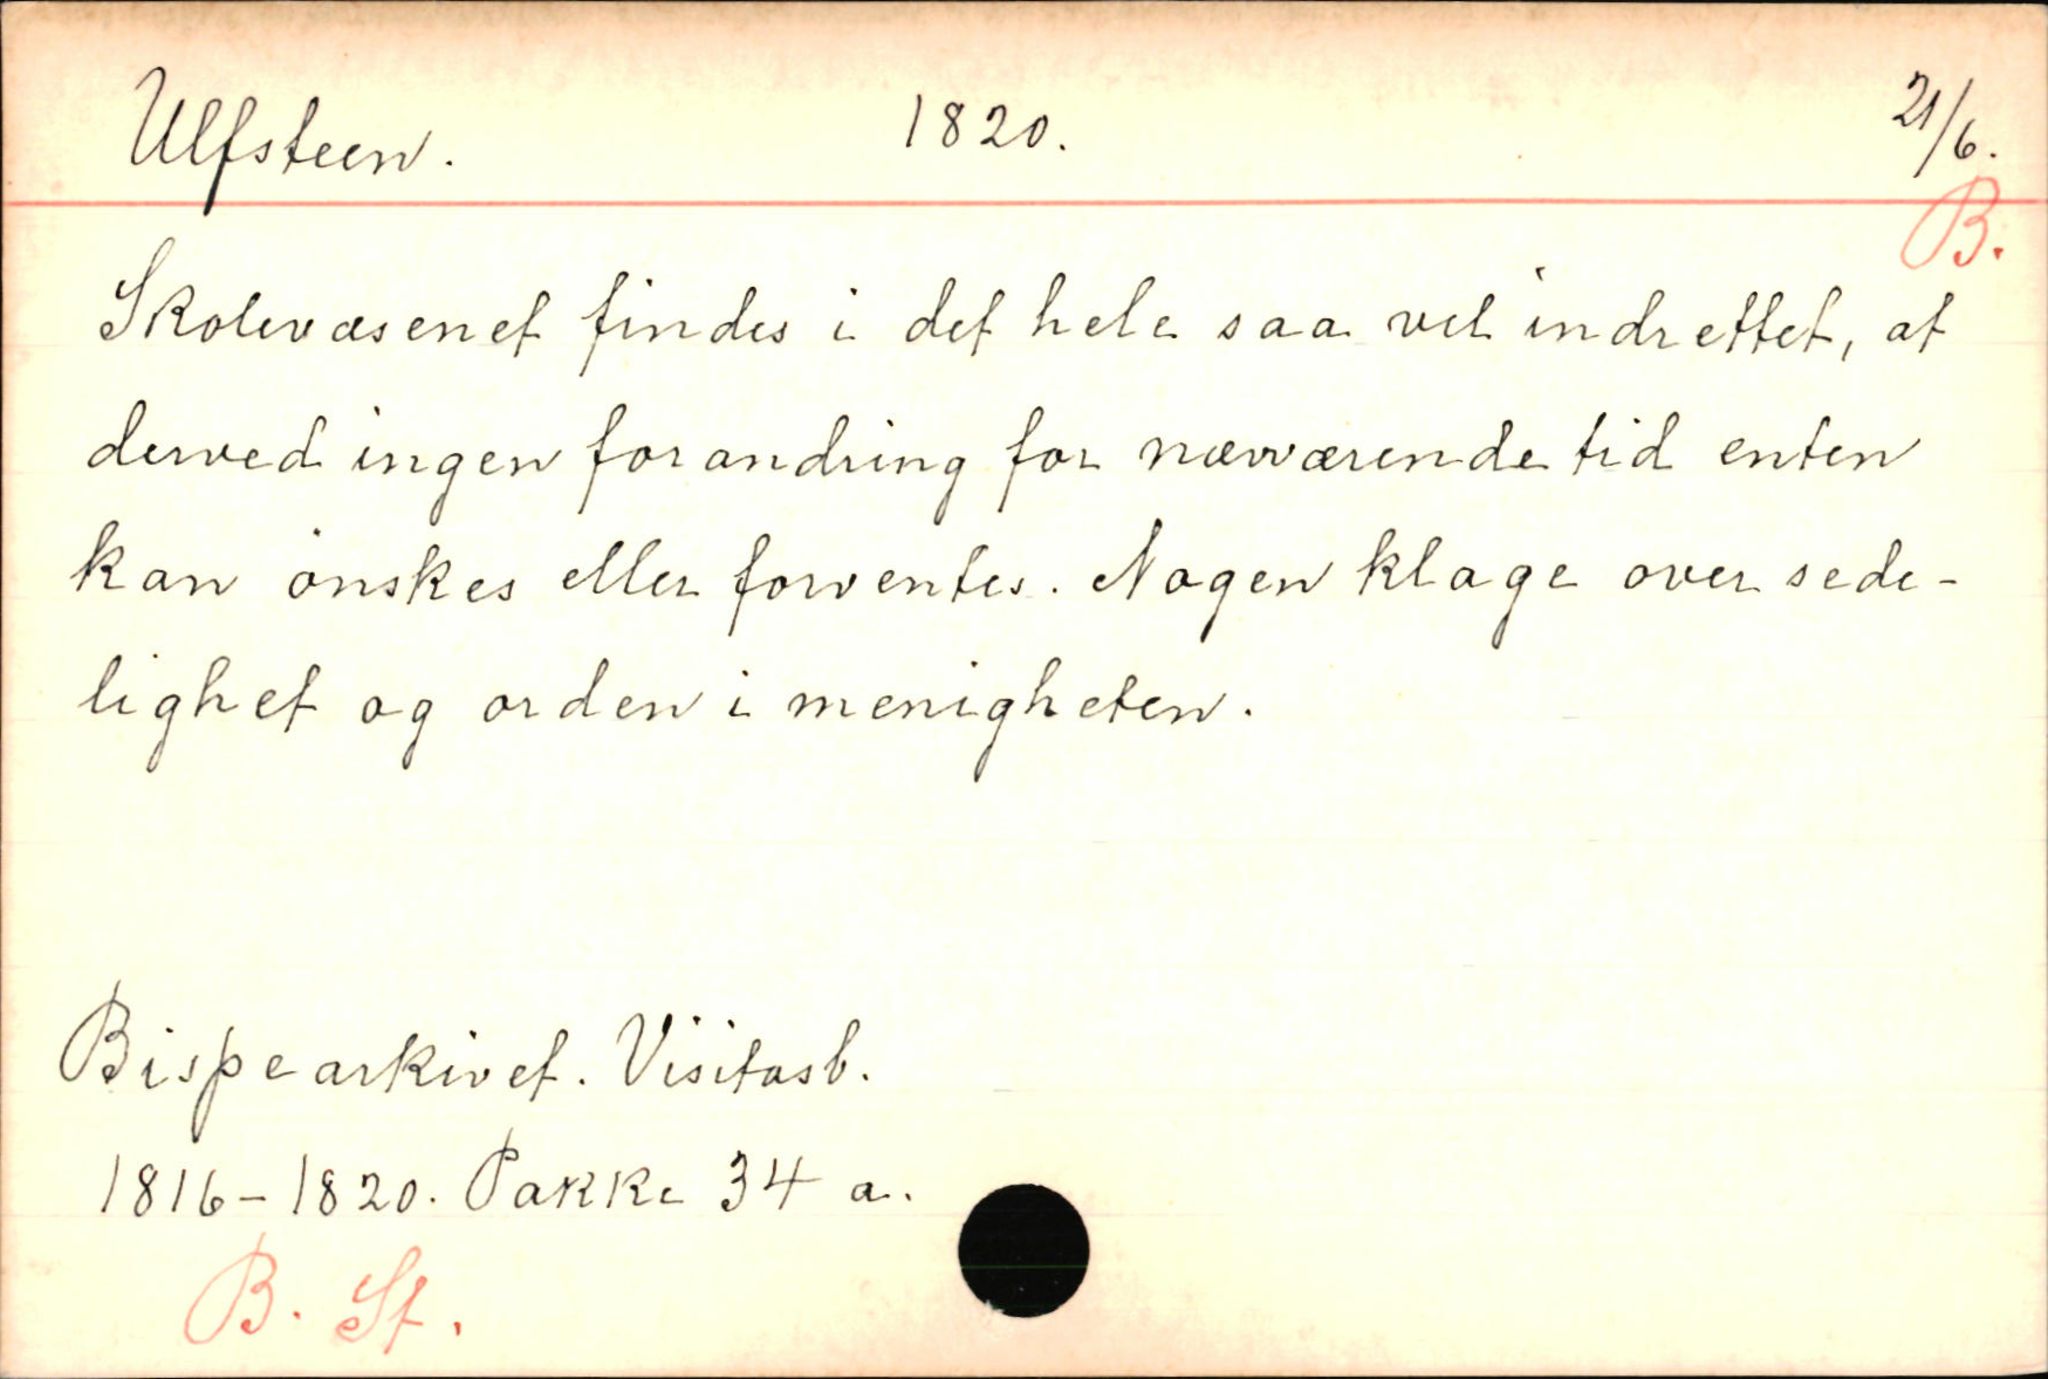 Ulfsteen. 1820. 21/6.
B.
Skolevæsenet findes i det hele saa vel indrettet, at
derved ingen forandring for nærværende tid enten
kan ønskes eller forventes. Nogen klage over sede-
lighet og orden i menigheten.
Bispearkivet. Visitasb.
1816-1820. Pakke 34 a.
B. St.